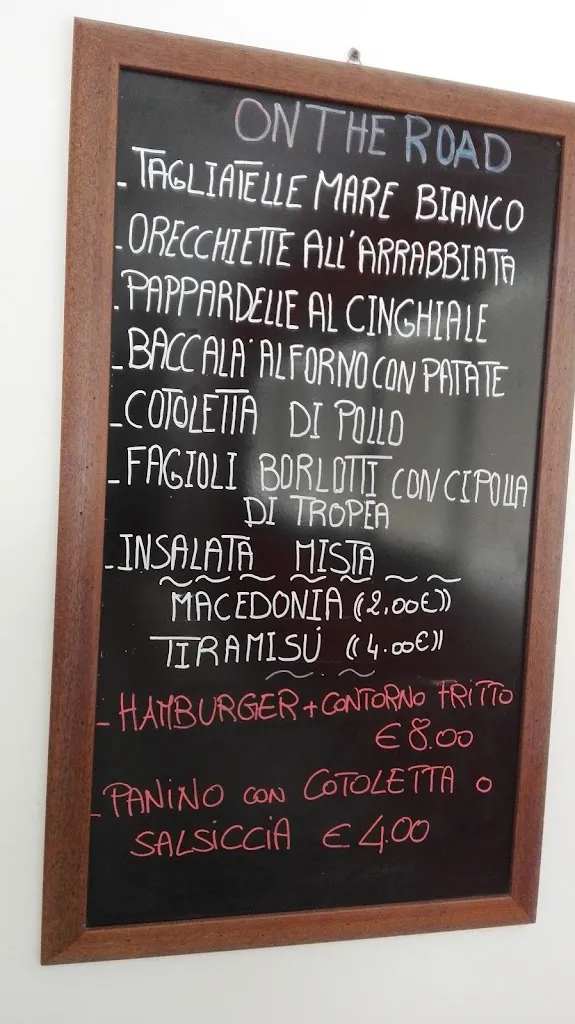 ON THE ROAD
- TAGLIATELLE MARE BIANCO
- ORECCHIETTE ALL'ARRABBIATA
- PAPPARDELLE AL CINGHIALE
- BACCALA' AL FORNO CON PATATE
- COTOLETTA DI POLLO
- FAGIOLI BORLOTTI CON CIPOLLA
DI TROPEA
- INSALATA MISTA
MACEDONIA ((2,00€))
TIRAMISÚ ((4,00€))
- HAMBURGER + CONTORNO FRITTO
€ 8.00
- PANINO CON COTOLETTA O
SALSICCIA € 4.00